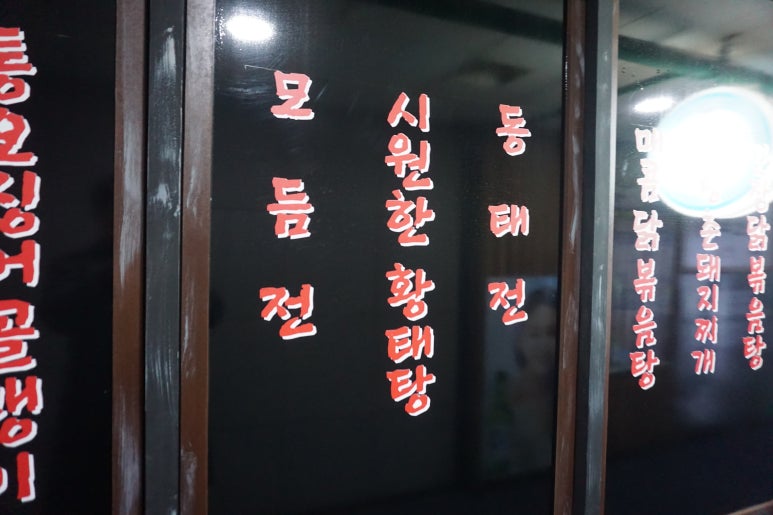 통오징어골뱅이
모듬전
시원한 황태탕
동태전
매콤닭볶음탕
돼지찌개
닭볶음탕